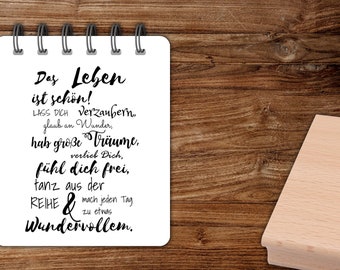 Das Leben
ist schön!
LASS DICH verzaubern,
glaub an Wunder,
hab große Träume,
verlieb Dich,
fühl dich frei,
tanz aus der
REIHE & mach jeden Tag
zu etwas
Wundervollem.